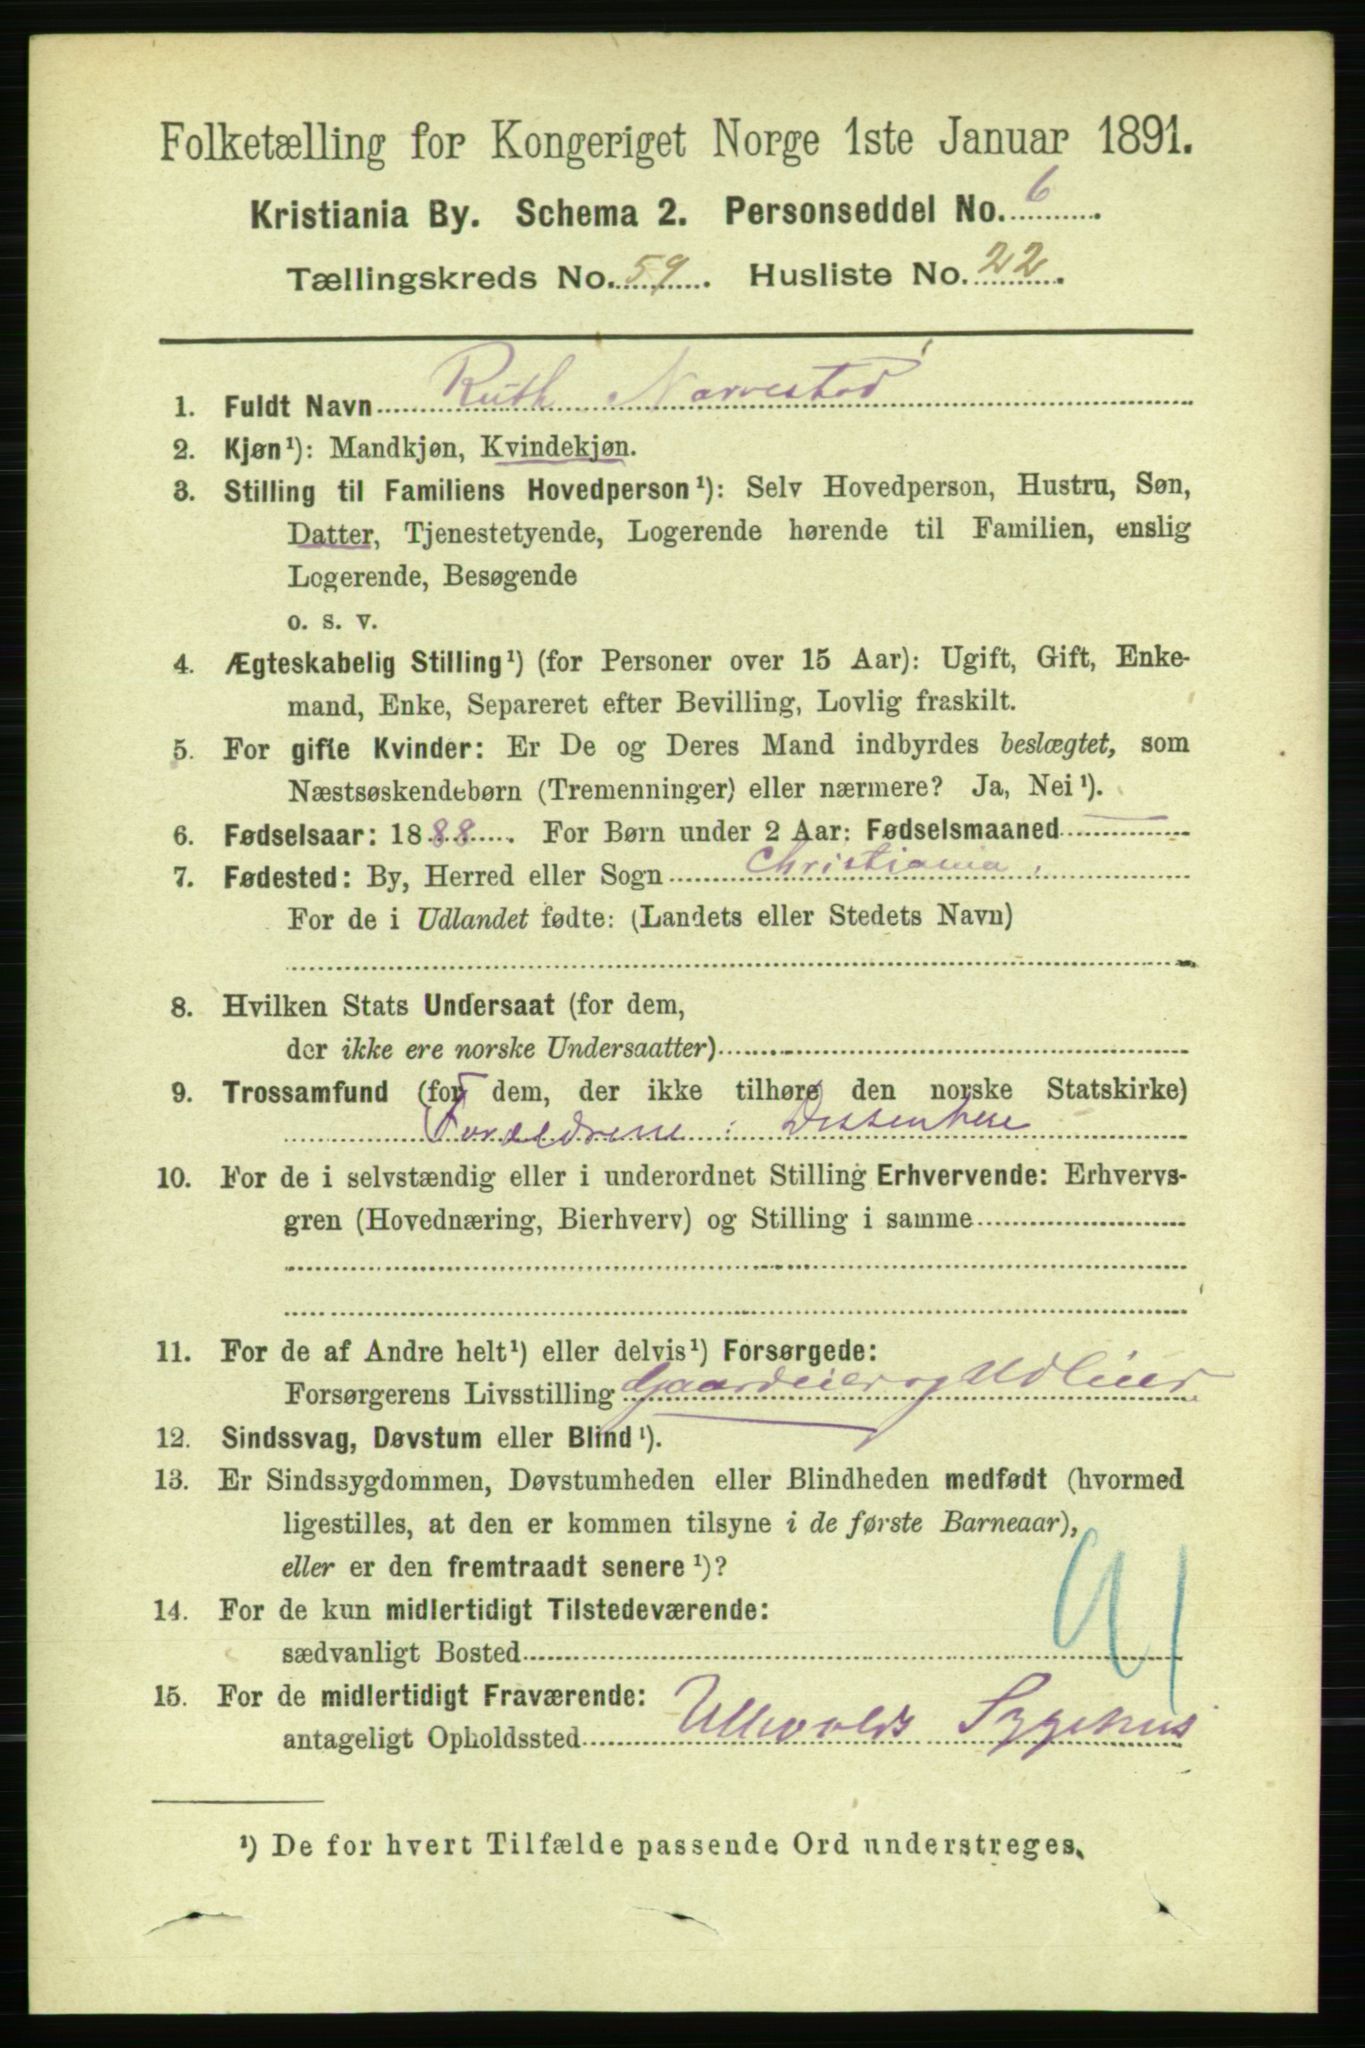 Folketælling for Kongeriget Norge 1ste Januar 1891.
Kristiania By. Schema 2. Personseddel No. 6.
Tællingskreds No. 59. Husliste No. 22.
1. Fuldt Navn Ruth Narvestad
2. Kjøn¹): Mandkjøn, Kvindekjøn.
3. Stilling til Familiens Hovedperson¹): Selv Hovedperson, Hustru, Søn,
Datter, Tjenestetyende, Logerende hørende til Familien, enslig
Logerende, Besøgende
o. s. v.
4. Ægteskabelig Stilling¹) (for Personer over 15 Aar): Ugift, Gift, Enke-
mand, Enke, Separeret efter Bevilling, Lovlig fraskilt.
5. For gifte Kvinder: Er De og Deres Mand indbyrdes beslægtet, som
Næstsøskendebørn (Tremenninger) eller nærmere? Ja, Nei¹).
6. Fødselsaar: 1888. For Børn under 2 Aar: Fødselsmaaned —
7. Fødested: By, Herred eller Sogn Christiania.
For de i Udlandet fødte: (Landets eller Stedets Navn)
8. Hvilken Stats Undersaat (for dem,
der ikke ere norske Undersaatter)
9. Trossamfund (for dem, der ikke tilhøre den norske Statskirke)
Foræeldrene: Dissentere
10. For de i selvstændig eller i underordnet Stilling Erhvervende: Erhvervs-
gren (Hovednæring, Bierhverv) og Stilling i samme
11. For de af Andre helt¹) eller delvis¹) Forsørgede:
Forsørgerens Livsstilling Gaardeier og Udleier
12. Sindssvag, Døvstum eller Blind¹).
13. Er Sindssygdommen, Døvstumheden eller Blindheden medfødt (hvormed
ligestilles, at den er kommen tilsyne i de første Barneaar),
eller er den fremtraadt senere¹)?
14. For de kun midlertidigt Tilstedeværende:
sædvanligt Bosted
91
15. For de midlertidigt Fraværende:
antageligt Opholdssted Ullevolds Sygehus
¹) De for hvert Tilfælde passende Ord understreges.